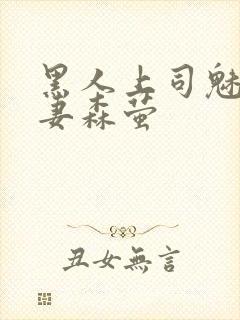 黑人上司魅
妻森萤
丑女無言